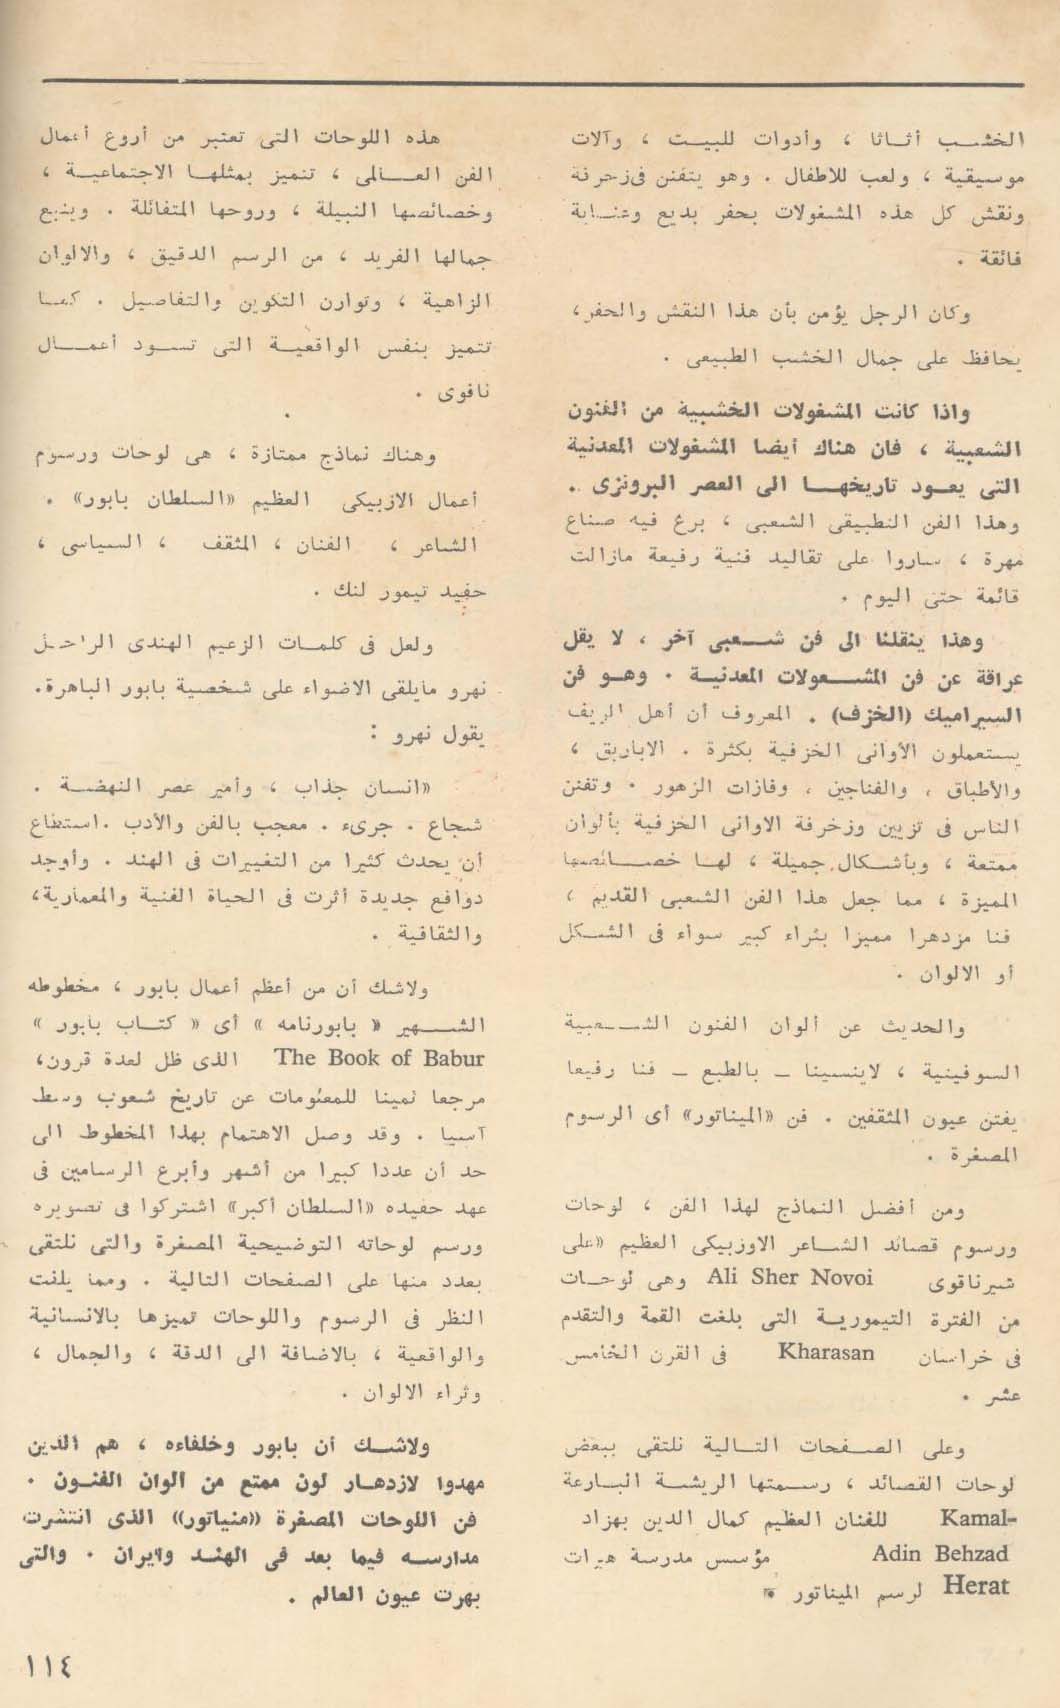 الخشب أثاثا ، وأدوات للبيت ، وآلات
موسيقية ، ولعب للاطفال . وهو يتفنن فى زخرفة
ونقش كل هذه المشغولات بحفر بديع وعناية
فائقة .
وكان الرجل يؤمن بأن هذا النقش والحفر ،
يحافظ على جمال الخشب الطبيعى .
واذا كانت المشغولات الخشبية من الفنون
الشعبية ، فان هناك أيضا المشغولات المعدنية
التى يعود تاريخها الى العصر البرونزى .
وهذا الفن التطبيقى الشعبى ، برع فيه صناع
مهرة ، ساروا على تقاليد فنية رفيعة مازالت
قائمة حتى اليوم .
وهذا ينقلنا الى فن شعبى آخر ، لا يقل
عراقة عن فن المشغولات المعدنية . وهو فن
السيراميك (الخزف) . المعروف أن أهل الريف
يستعملون الأوانى الخزفية بكثرة . الاباريق ،
والأطباق ، والفناجين ، وفازات الزهور . وتفنن
الناس فى تزيين وزخرفة الاوانى الخزفية بألوان
ممتعة ، وبأشكال جميلة ، لها خصائصها
المميزة ، مما جعل هذا الفن الشعبى القديم ،
فنا مزدهرا مميزا بثراء كبير سواء فى الشكل
أو الالوان .
والحديث عن ألوان الفنون الشعبية
السوفيتية ، لاينسينا – بالطبع – فنا رفيعا
يفتن عيون المثقفين . فن «الميناتور» أى الرسوم
المصغرة .
ومن أفضل النماذج لهذا الفن ، لوحات
ورسوم قصائد الشاعر الاوزبيكى العظيم «على
شيرناقوى Ali Sher Novoi وهى لوحات
من الفترة التيمورية التى بلغت القمة والتقدم
فى خراسان Kharasan فى القرن الخامس
عشر .
وعلى الصفحات التالية نلتقى ببعض
لوحات القصائد ، رسمتها الريشة البارعة
للفنان العظيم كمال الدين بهزاد Kamal-
Adin Behzad مؤسس مدرسة هيرات
Herat لرسم الميناتور .
هذه اللوحات التى تعتبر من أروع أعمال
الفن العالمى ، تتميز بمثلها الاجتماعية ،
وخصائصها النبيلة ، وروحها المتفائلة . وينبع
جمالها الفريد ، من الرسم الدقيق ، والالوان
الزاهية ، وتوازن التكوين والتفاصيل . كما
تتميز بنفس الواقعية التى تسود أعمال
نافوى .
وهناك نماذج ممتازة ، هى لوحات ورسوم
أعمال الازبيكى العظيم «السلطان بابور» .
الشاعر ، الفنان ، المثقف ، السياسى ،
حفيد تيمور لنك .
ولعل فى كلمات الزعيم الهندى الراحل
نهرو مايلقى الاضواء على شخصية بابور الباهرة.
يقول نهرو :
«انسان جذاب ، وأمير عصر النهضة .
شجاع . جرىء . معجب بالفن والأدب . استطاع
أن يحدث كثيرا من التغييرات فى الهند . وأوجد
دوافع جديدة أثرت فى الحياة الفنية والمعمارية،
والثقافية .
ولاشك أن من أعظم أعمال بابور ، مخطوطه
الشهير « بابورنامه » أى « كتاب بابور »
The Book of Babur الذى ظل لعدة قرون،
مرجعا ثمينا للمعلومات عن تاريخ شعوب وسط
آسيا . وقد وصل الاهتمام بهذا المخطوط الى
حد أن عددا كبيرا من أشهر وأبرع الرسامين فى
عهد حفيده «السلطان أكبر» اشتركوا فى تصويره
ورسم لوحاته التوضيحية المصغرة والتى نلتقى
بعدد منها على الصفحات التالية . ومما يلفت
النظر فى الرسوم واللوحات تميزها بالانسانية
والواقعية ، بالاضافة الى الدقة ، والجمال ،
وثراء الالوان .
ولاشك أن بابور وخلفاءه ، هم الذين
مهدوا لازدهار لون ممتع من ألوان الفنون .
فن اللوحات المصغرة «منياتور» الذى انتشرت
مدارسه فيما بعد فى الهند وايران . والتى
بهرت عيون العالم .
١١٤